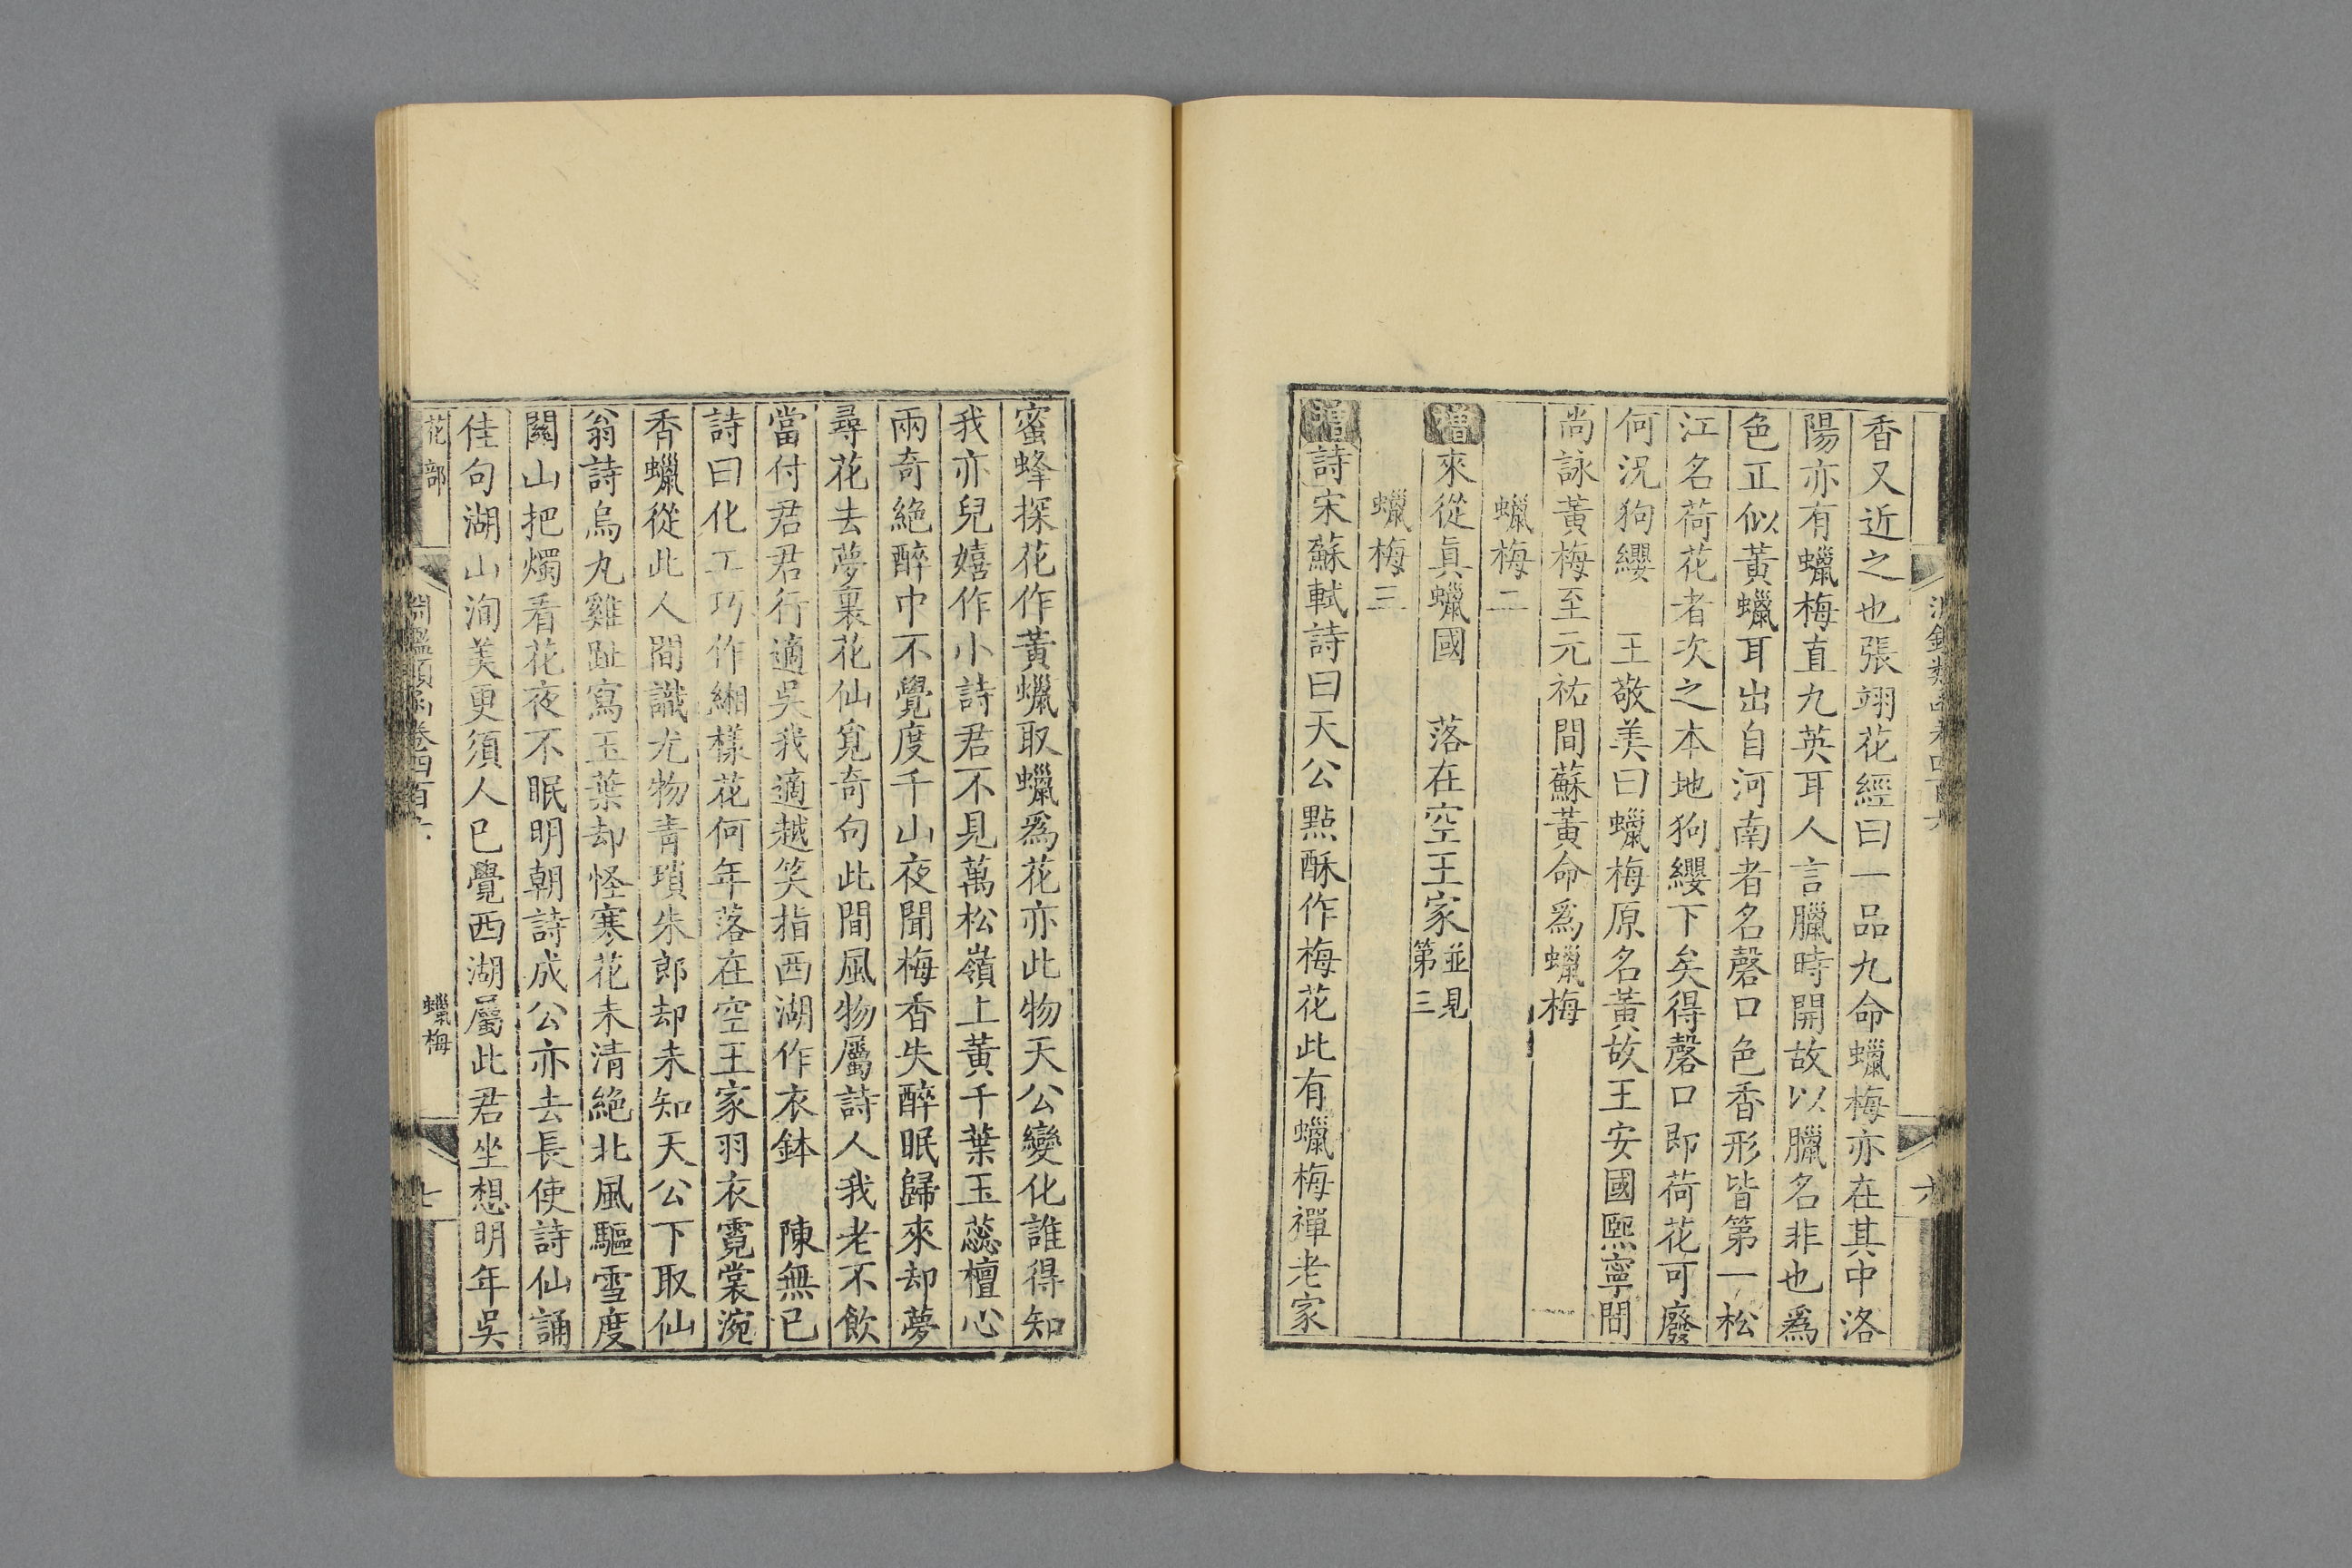 香又近之也張翊花經曰一品九命蠟梅亦在其中洛
陽亦有蠟梅直九英耳人言臘時開故以臘名非也爲
色正似黃蠟耳出自河南者名磬口色香形皆第一松
江名荷花者次之本地狗纓下矣得磬口即荷花可廢
何況狗纓　王敬美曰蠟梅原名黃故王安國熙寧間
尚詠黃梅至元祐間蘇黃命爲蠟梅
蠟梅二
增來從真蠟國　落在空王家並見第三
蠟梅三
增詩宋蘇軾詩曰天公點酥作梅花此有蠟梅禪老家
蜜蜂採花作黃蠟取蠟爲花亦此物天公變化誰得知
我亦兒嬉作小詩君不見萬松嶺上黃千葉玉蕊檀心
兩奇絕醉中不覺度千山夜聞梅香失醉眠歸來却夢
尋花去夢裏花仙覓奇句此間風物屬詩人我老不飲
當付君君行適吳我適越笑指西湖作衣鉢　陳無已
詩曰化工巧作緗樣花何年落在空王家羽衣霓裳涴
香蠟從此人間識尤物青瑣朱郎却未知天公下取仙
翁詩烏丸雞距寫玉葉却怪寒花未清絕北風驅雪度
關山把燭看花夜不眠明朝詩成公亦去長使詩仙誦
佳句湖山洵美更須人已覺西湖屬此君坐想明年吳
花部
淵鑑類函卷四百六
蠟梅
七